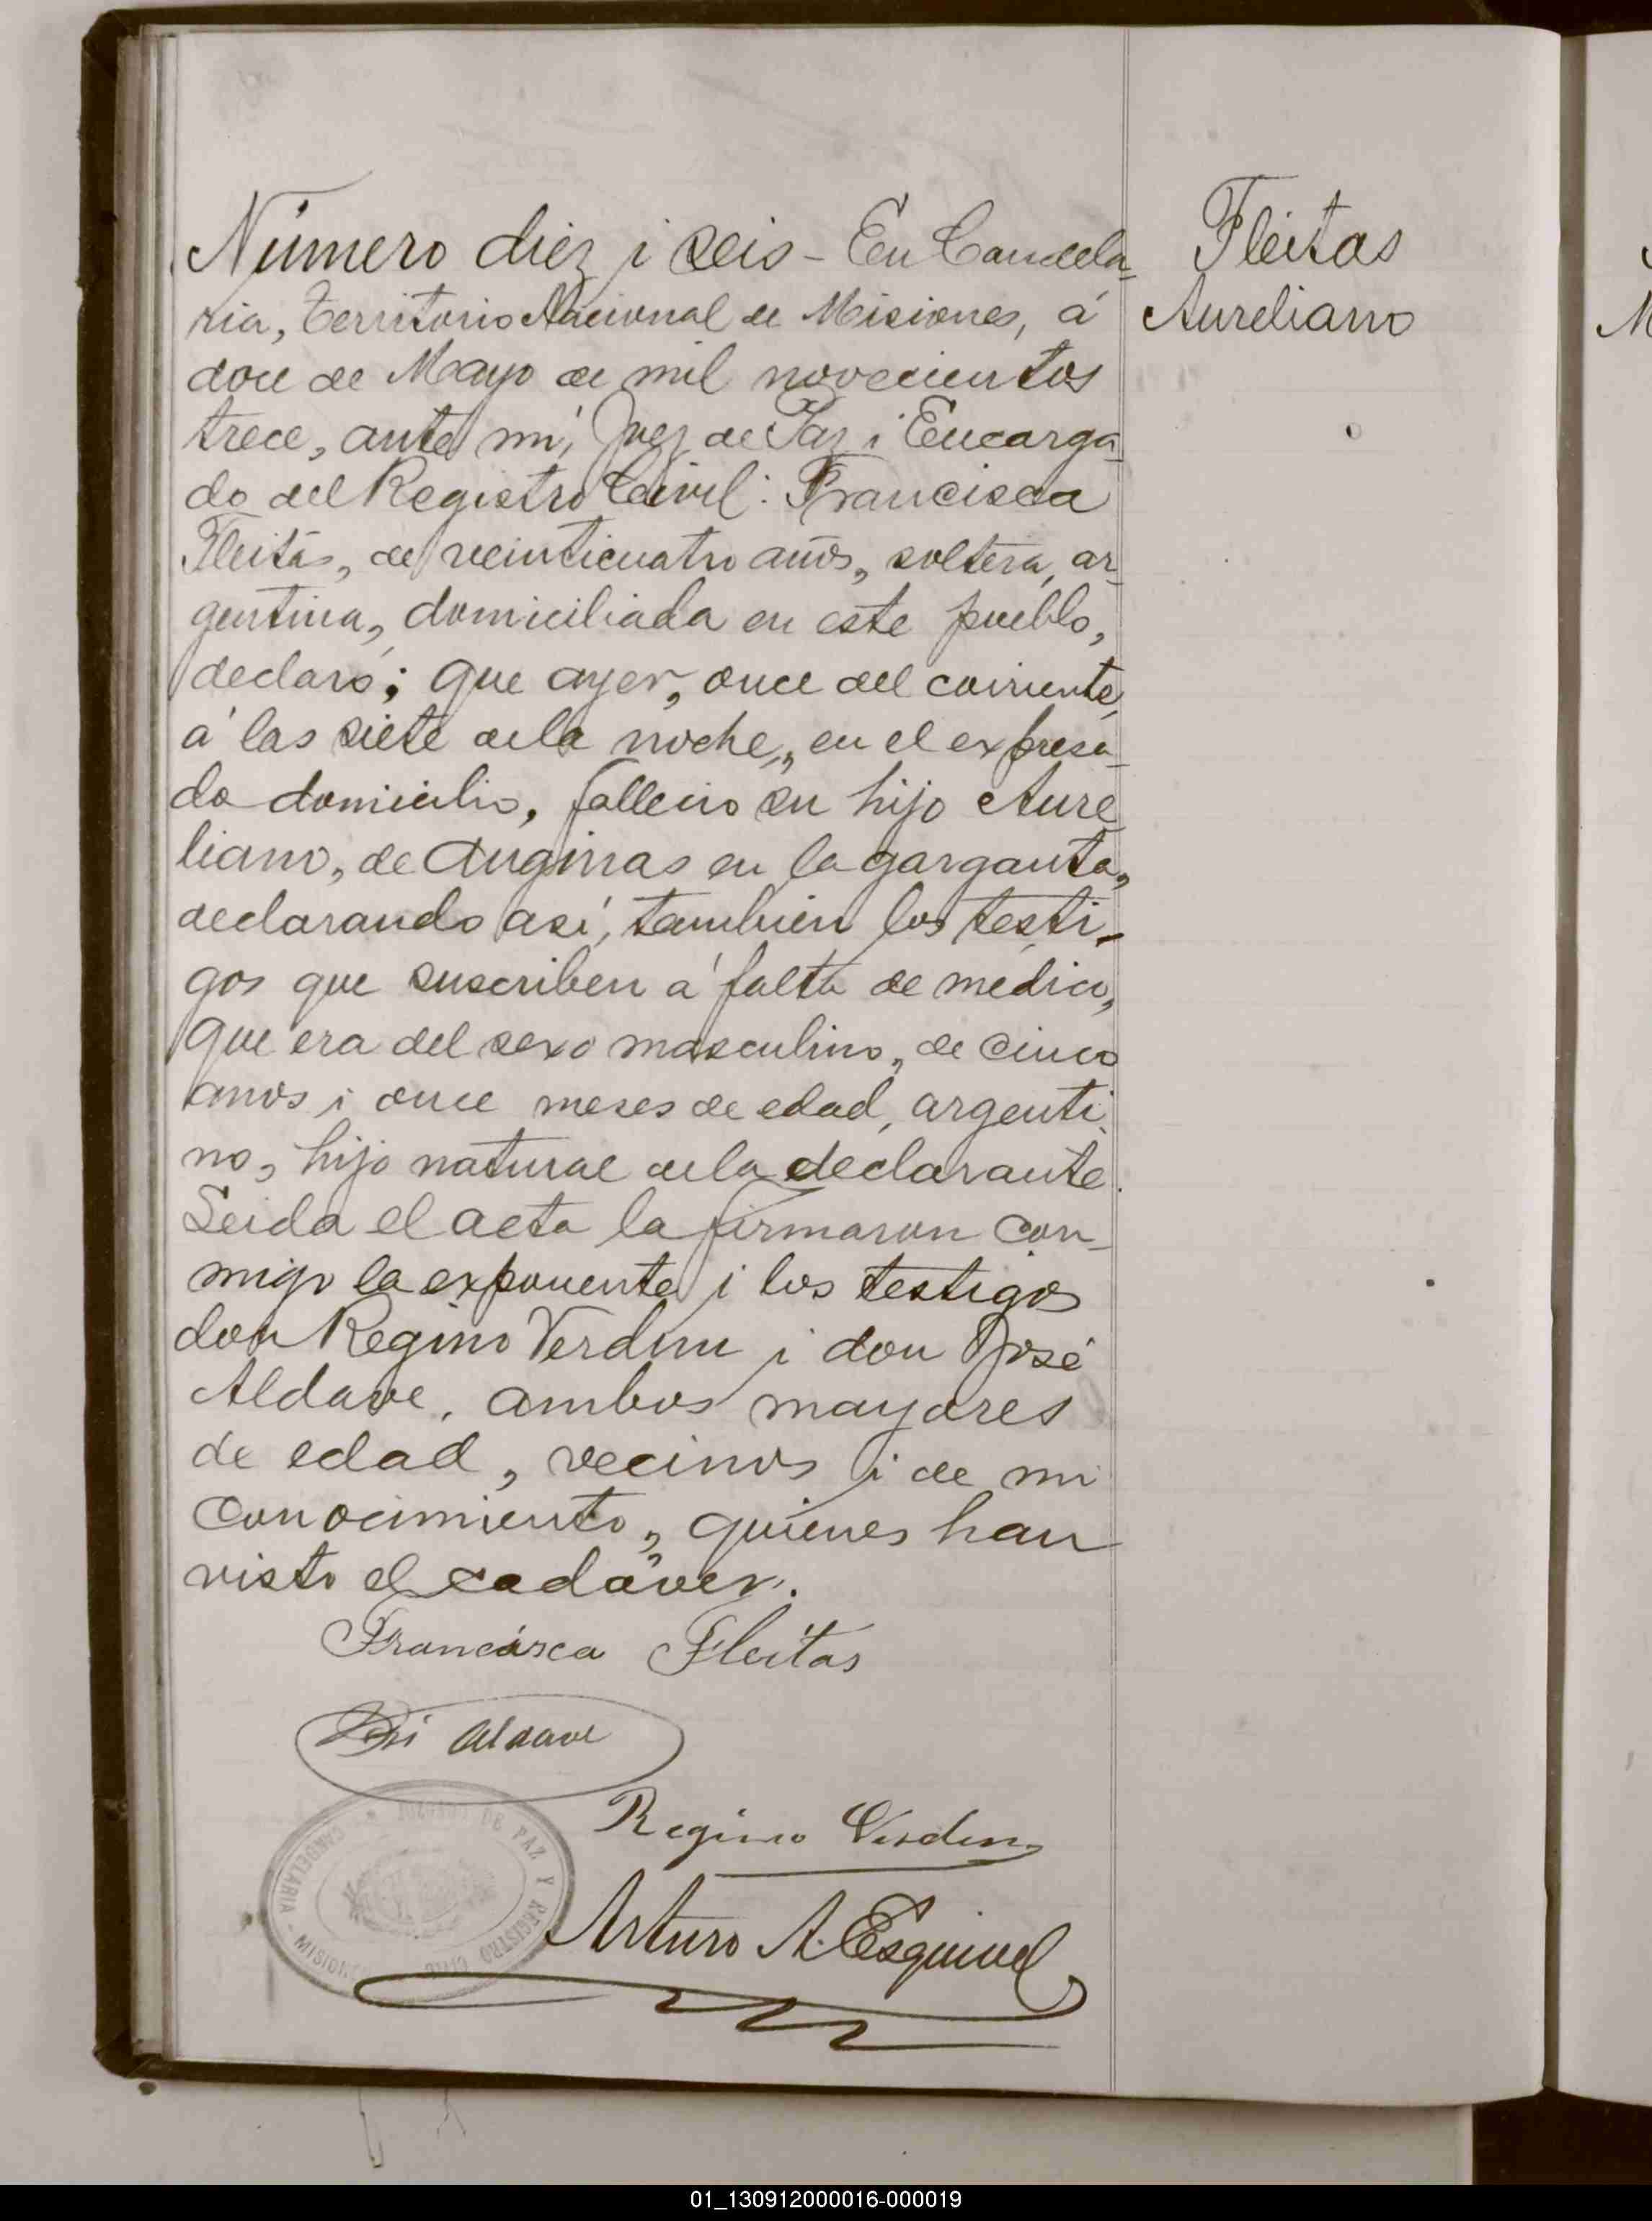 Número diez i seis - En Candela-
ria, Territorio Nacional de Misiones, á
doce de Mayo de mil novecientos
trece, ante mí, Juez de Paz i Encarga-
do del Registro Civil: Francisca
Fleitas, de veinticuatro años, soltera, ar-
gentina, domiciliada en este pueblo,
declaró; que ayer, once del corriente,
á las siete de la noche, en el expresa-
do domicilio, falleció su hijo Aure-
liano, de Anginas en la garganta,
declarando así, también los testi-
gos que suscriben á falta de médico,
que era del sexo masculino, de cinco
años i once meses de edad, argenti-
no, hijo natural de la declarante.
Leida el acta la firmaron con-
migo la exponente i los testigos
don Regino Verdun i don José
Aldave, ambos mayores
de edad, vecinos i de mi
conocimiento, quienes han
visto el cadáver.
Francisca Fleitas
José Aldave
Regino Verdun
Arturo A. Esquivel
DE PAZ Y REGISTRO CIVIL
CANDELARIA - MISIONES
Fleitas
Aureliano
01_130912000016-000019